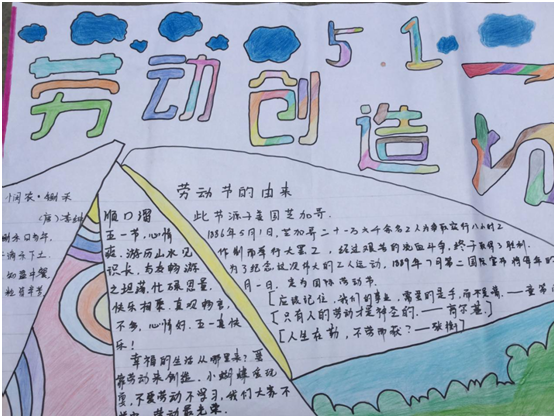 5.1
劳动创造一切
悯农·锄禾
(唐) 李绅
锄禾日当午
滴禾下土
知盘中餐
粒皆辛苦
顺口溜
五一节,心情
爽,游历山水见
识长,与友畅游
快乐相聚,
不多,心情好,五一真快
乐!
幸福的生活从哪里来?要
靠劳动来创造,小蝴蝶贪玩
耍,不爱劳动不学习,我们大家不
劳动最光荣.
劳动节的由来
此节源于美国芝加哥.
1886年5月1日,芝加哥二十一万六千余名工人为争取实行八小时工
作制而举行大罢工,经过艰苦的流血斗争,终于取得了胜利.
为了纪念这次伟大的工人运动,1889年7月第二国际宣布将每年的
月一日,定为国际劳动节.
[应该记住,我们的事业,需要的是手,而不是嘴.——童第
[只有人的劳动才是神圣的.——高尔基]
[人生在勤,不劳何获?——张衡]